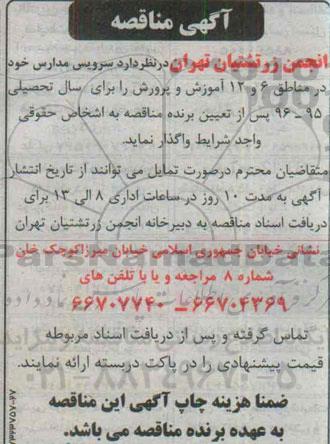 آگهی مناقصه
انجمن زرتشتیان تهران درنظردارد سرویس مدارس خود
در مناطق ۶ و ۱۲ آموزش و پرورش را برای سال تحصیلی
۹۵ - ۹۶ پس از تعیین برنده مناقصه به اشخاص حقوقی
واجد شرایط واگذار نماید.
متقاضیان محترم درصورت تمایل می توانند از تاریخ انتشار
آگهی به مدت ۱۰ روز در ساعات اداری ۸ الی ۱۳ برای
دریافت اسناد مناقصه به دبیرخانه انجمن زرتشتیان تهران
نشانی خیابان جمهوری اسلامی خیابان میرزاکوچک خان
شماره ۸ مراجعه و یا با تلفن های
۶۶۷۰۴۳۶۹ – ۶۶۷۰۷۷۴۰
تماس گرفته و پس از دریافت اسناد مربوطه
قیمت پیشنهادی را در پاکت دربسته ارائه نمایند.
ضمنا هزینه چاپ آگهی این مناقصه
به عهده برنده مناقصه می باشد.